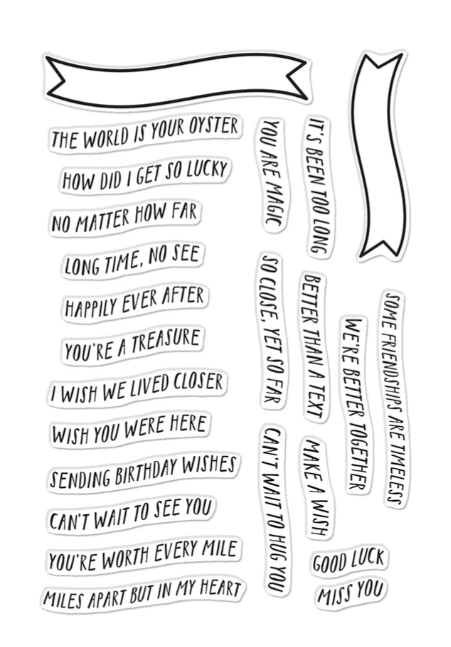 THE WORLD IS YOUR OYSTER
HOW DID I GET SO LUCKY
NO MATTER HOW FAR
LONG TIME, NO SEE
HAPPILY EVER AFTER
YOU'RE A TREASURE
I WISH WE LIVED CLOSER
WISH YOU WERE HERE
SENDING BIRTHDAY WISHES
CAN'T WAIT TO SEE YOU
YOU'RE WORTH EVERY MILE
MILES APART BUT IN MY HEART
YOU ARE MAGIC
IT'S BEEN TOO LONG
SO CLOSE, YET SO FAR
BETTER THAN A TEXT
WE'RE BETTER TOGETHER
SOME FRIENDSHIPS ARE TIMELESS
CAN'T WAIT TO HUG YOU
MAKE A WISH
GOOD LUCK
MISS YOU